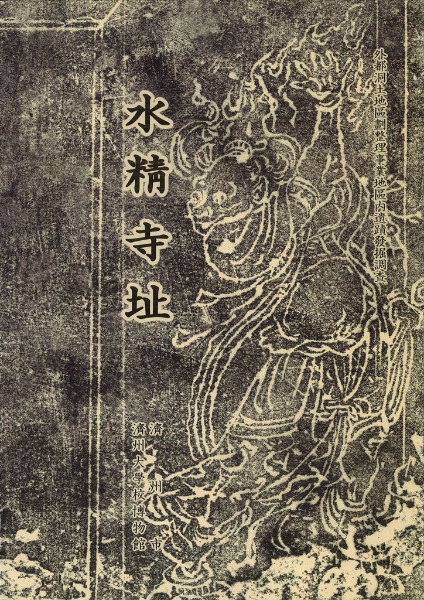 外都洞土地區劃整理事業地區內遺蹟發掘調
水精寺址
濟州市
濟州大學校博物館